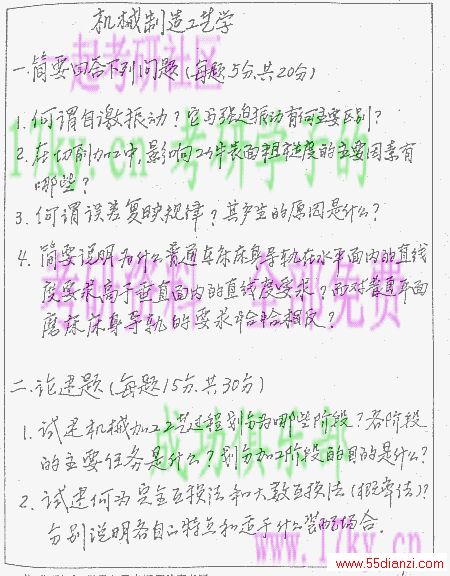 机械制造工艺学
一起考研社区
一.简要回答下列问题(每题5分,共20分)
1.何谓自激振动?它与强迫振动有何主要区别?
17ky.cn 考研学子的
2.在切削加工中,影响工件表面粗糙度的主要因素有
哪些?
3.何谓误差复映规律?其产生的原因是什么?
4.简要说明为什么普通车床床身导轨在水平面内的直线
度要求高于垂直面内的直线度要求?而对普通平面
考研资料 全部免费
磨床床身导轨的要求恰恰相反?
二.论述题(每题15分,共30分)
1.试述机械加工工艺过程划分为哪些阶段?各阶段
的主要任务是什么?划分加工阶段的目的是什么?
成功俱乐部
2.试述何为完全互换法和大数互换法(概率法)?
分别说明各自的特点和适于什么装配场合.
www.17ky.cn
www.55dianzi.com